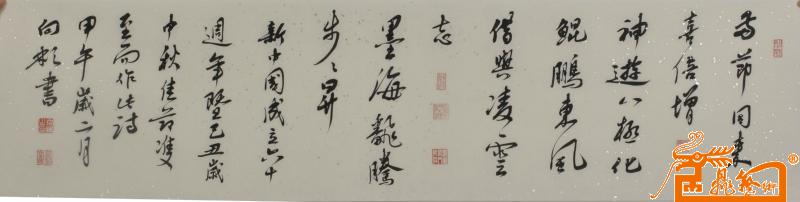 両節同來
喜倍增
神遊八極化
鯤鵬東風
借與凌雲
志
墨海龍騰
步步昇
新中國成立六十
週年暨己丑歲
中秋佳節雙
至而作此詩
甲午歲二月
向彬書